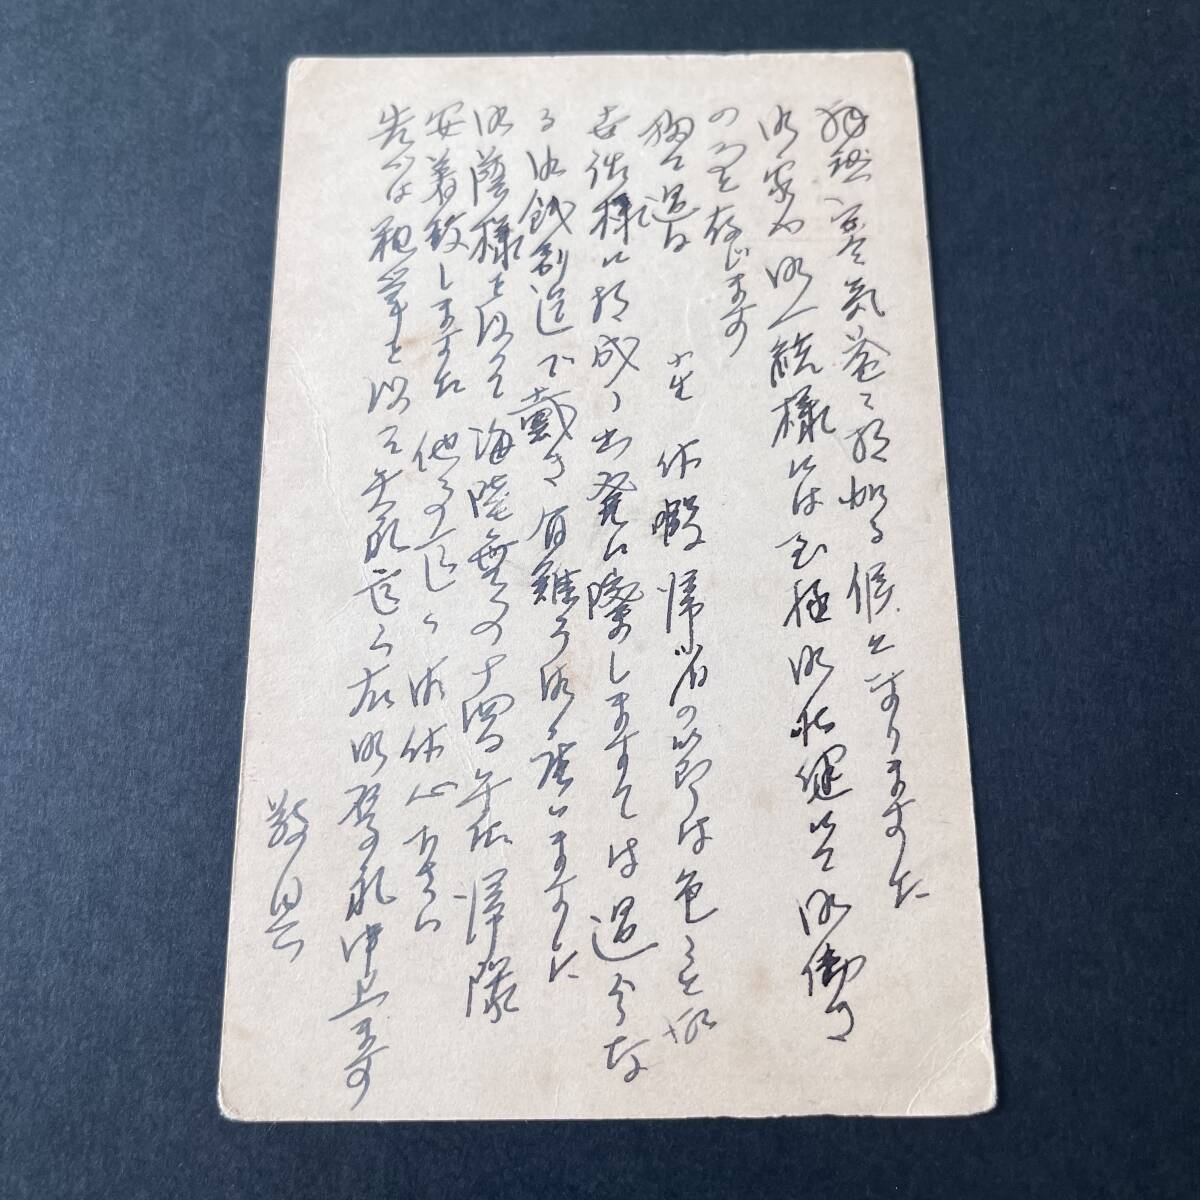 拝啓 寒気益々相加る候となりました
御家内御一統様には至極御壮健にて御働き
の事と存じます
扨て過日 小生 休暇帰省の節は色々と御
世話様に相成り出発に際しましては過分な
る御餞別迄で戴き有難う御座いました
御蔭様を以て海陸無事十四日午后帰隊
安着致しました 他事乍ら御休心下さい
先づは粗筆を以て失礼乍ら右御挨拶申上ます
敬具